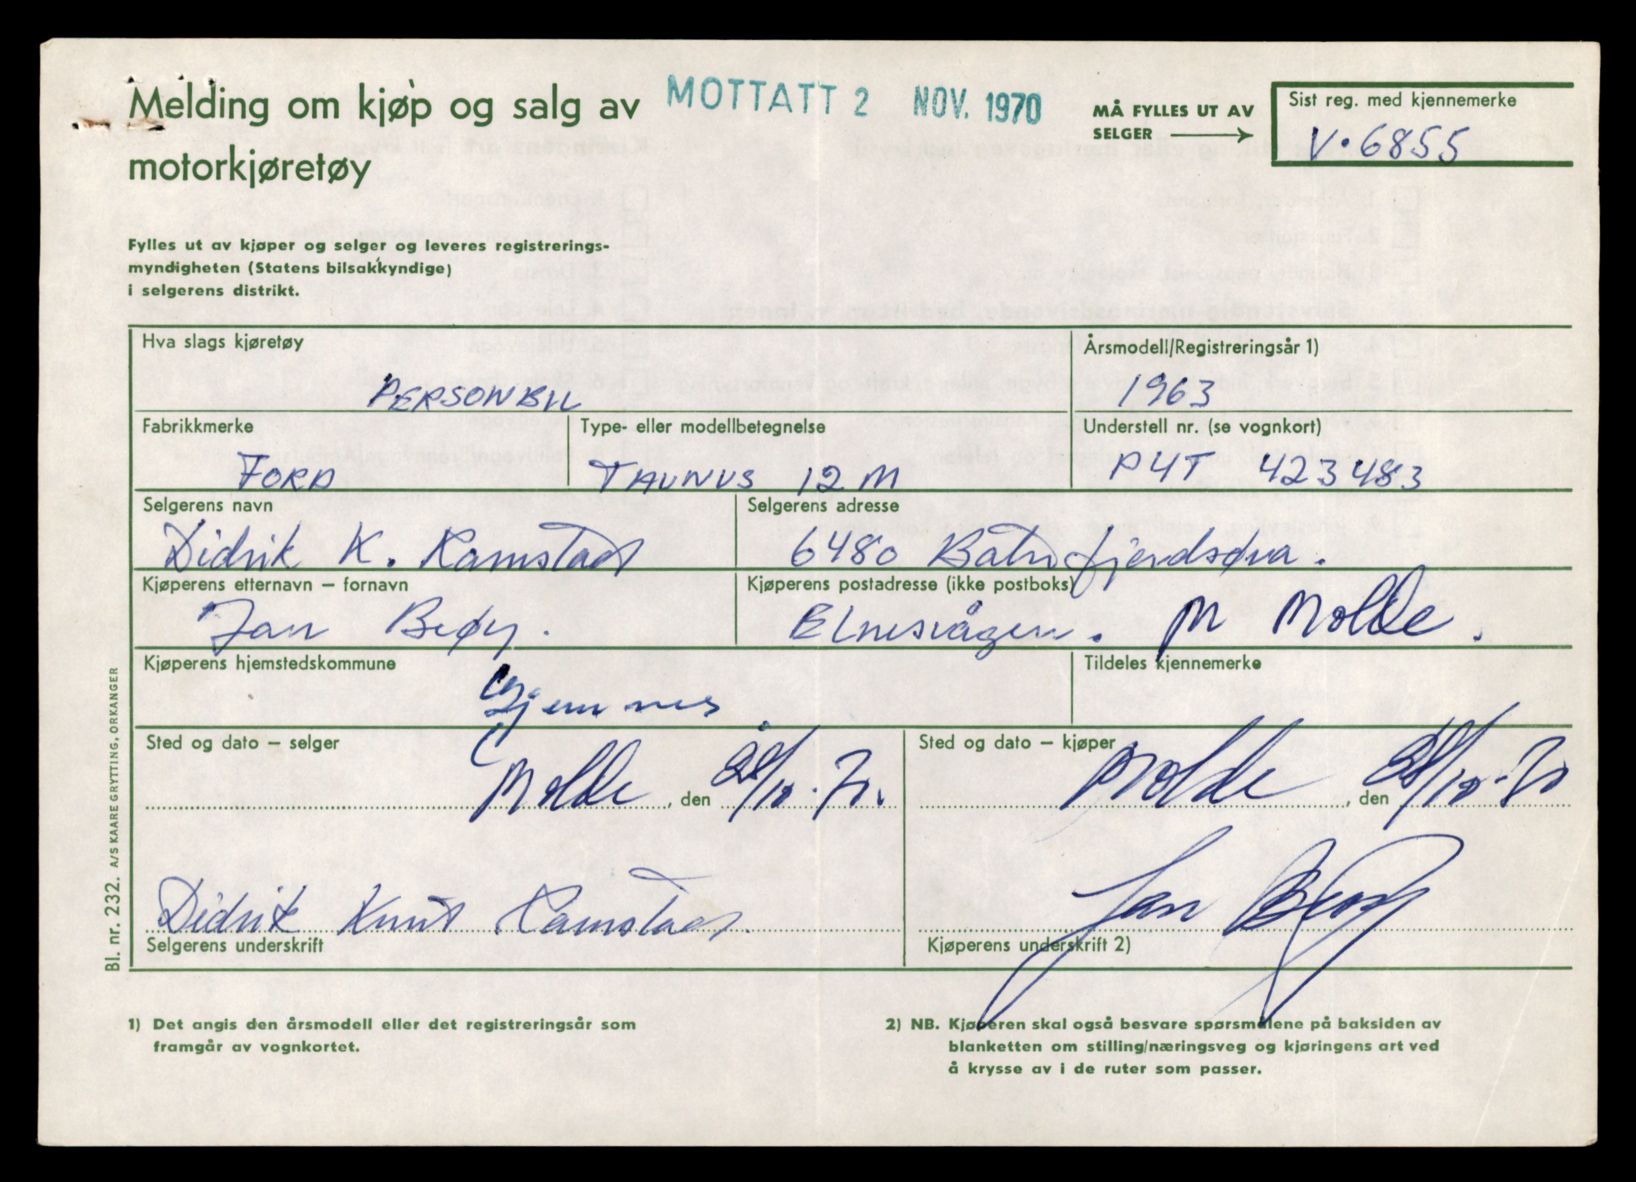 Melding om kjøp og salg av
motorkjøretøy
MOTTATT 2 NOV. 1970
MÅ FYLLES UT AV
SELGER
Sist reg. med kjennemerke
V·6855
Fylles ut av kjøper og selger og leveres registrerings-
myndigheten (Statens bilsakkyndige)
i selgerens distrikt.
Hva slags kjøretøy
PERSONBIL
Årsmodell/Registreringsår 1)
1963
Fabrikkmerke
FORD
Type- eller modellbetegnelse
TAUNUS 12 M
Understell nr. (se vognkort)
P4T 423483
Selgerens navn
Didrik K. Ramstad
Selgerens adresse
6480 Båtnfjordsøra.
Kjøperens etternavn – fornavn
Jan
Kjøperens postadresse (ikke postboks)
Elnesvågen. Molde.
Kjøperens hjemstedskommune
Gjemnes
Tildeles kjennemerke
Sted og dato – selger
Molde, den 28/10-70.
Sted og dato – kjøper
Molde, den 28/10-70
Didrik Knut Ramstad.
Selgerens underskrift
Jan
Kjøperens underskrift 2)
1) Det angis den årsmodell eller det registreringsår som
framgår av vognkortet.
2) NB. Kjøperen skal også besvare spørsmålene på baksiden av
blanketten om stilling/næringsveg og kjøringens art ved
å krysse av i de ruter som passer.
Bl. nr. 232. A/S KAARE GRYTTING, ORKANGER